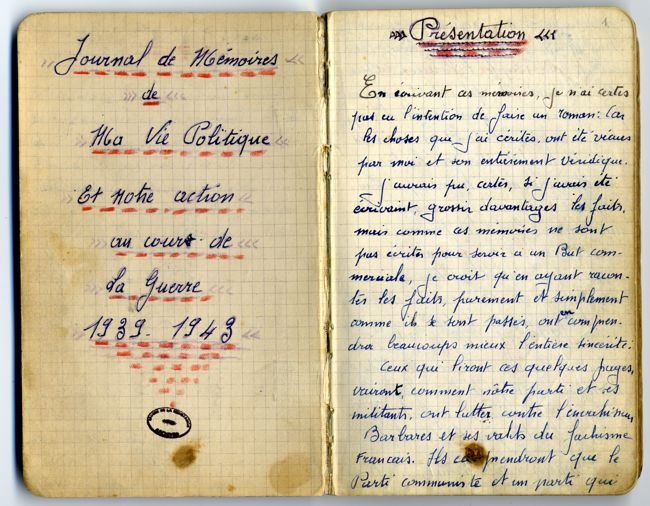 Journal de Mémoires
de
Ma Vie Politique
Et Notre action
au cours de
La Guerre
1939- 1943
1
Présentation
En écrivant ces mémoires, je n'ai certes
pas eu l'intention de faire un roman: Car
les choses que j'ai écrites, ont été vécues
par moi et son entièrement véridique.
J'aurais pu, certes, si j'avais été
écrivant, grossir davantages les faits,
mais comme ces mémoires ne sont
pas écrites pour servir a un But com-
merciale, je croit qu'en ayant racon-
tés les faits, purement et simplement
comme ils se sont passés, ont en compren-
dra beaucoups mieux l'entière sincérité.
Ceux qui liront ces quelques pages,
vairont, comment nôtre parti et ses
militants, ont lutter contre l'envahisseur
Barbares et ses valets du fachisme
Francais. Ils comprendront que le
Parti communiste et un parti qui